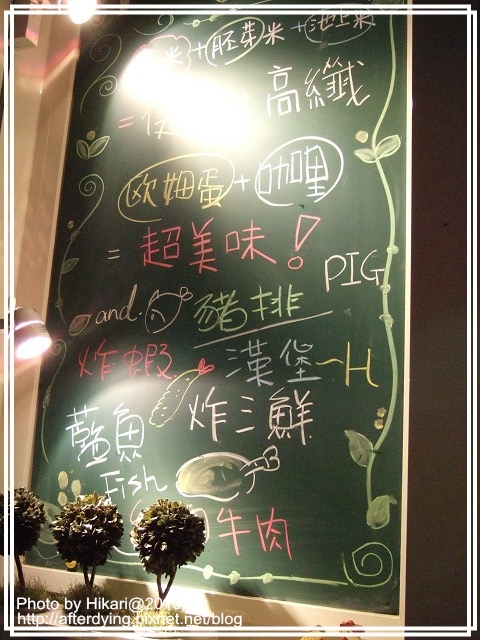 米+胚芽米+池上米
= 高纖
欧姆蛋+咖哩
= 超美味!
PIG
and. 豬排
炸蝦 漢堡~H
藍魚 炸三鮮
Fish
牛肉
Photo by Hikari@20
http://afterdying.pixnet.net/blog